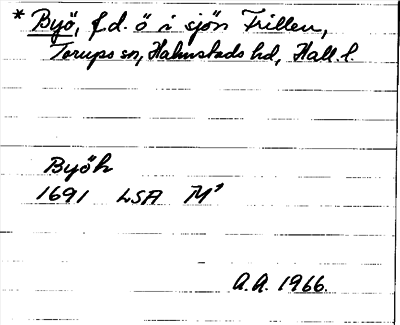 * Byö, f.d. ö i sjön Frillen,
Torups sn, Halmstads hd, Hall. l.
Byöh
1691 LSA M³
A.A. 1966.